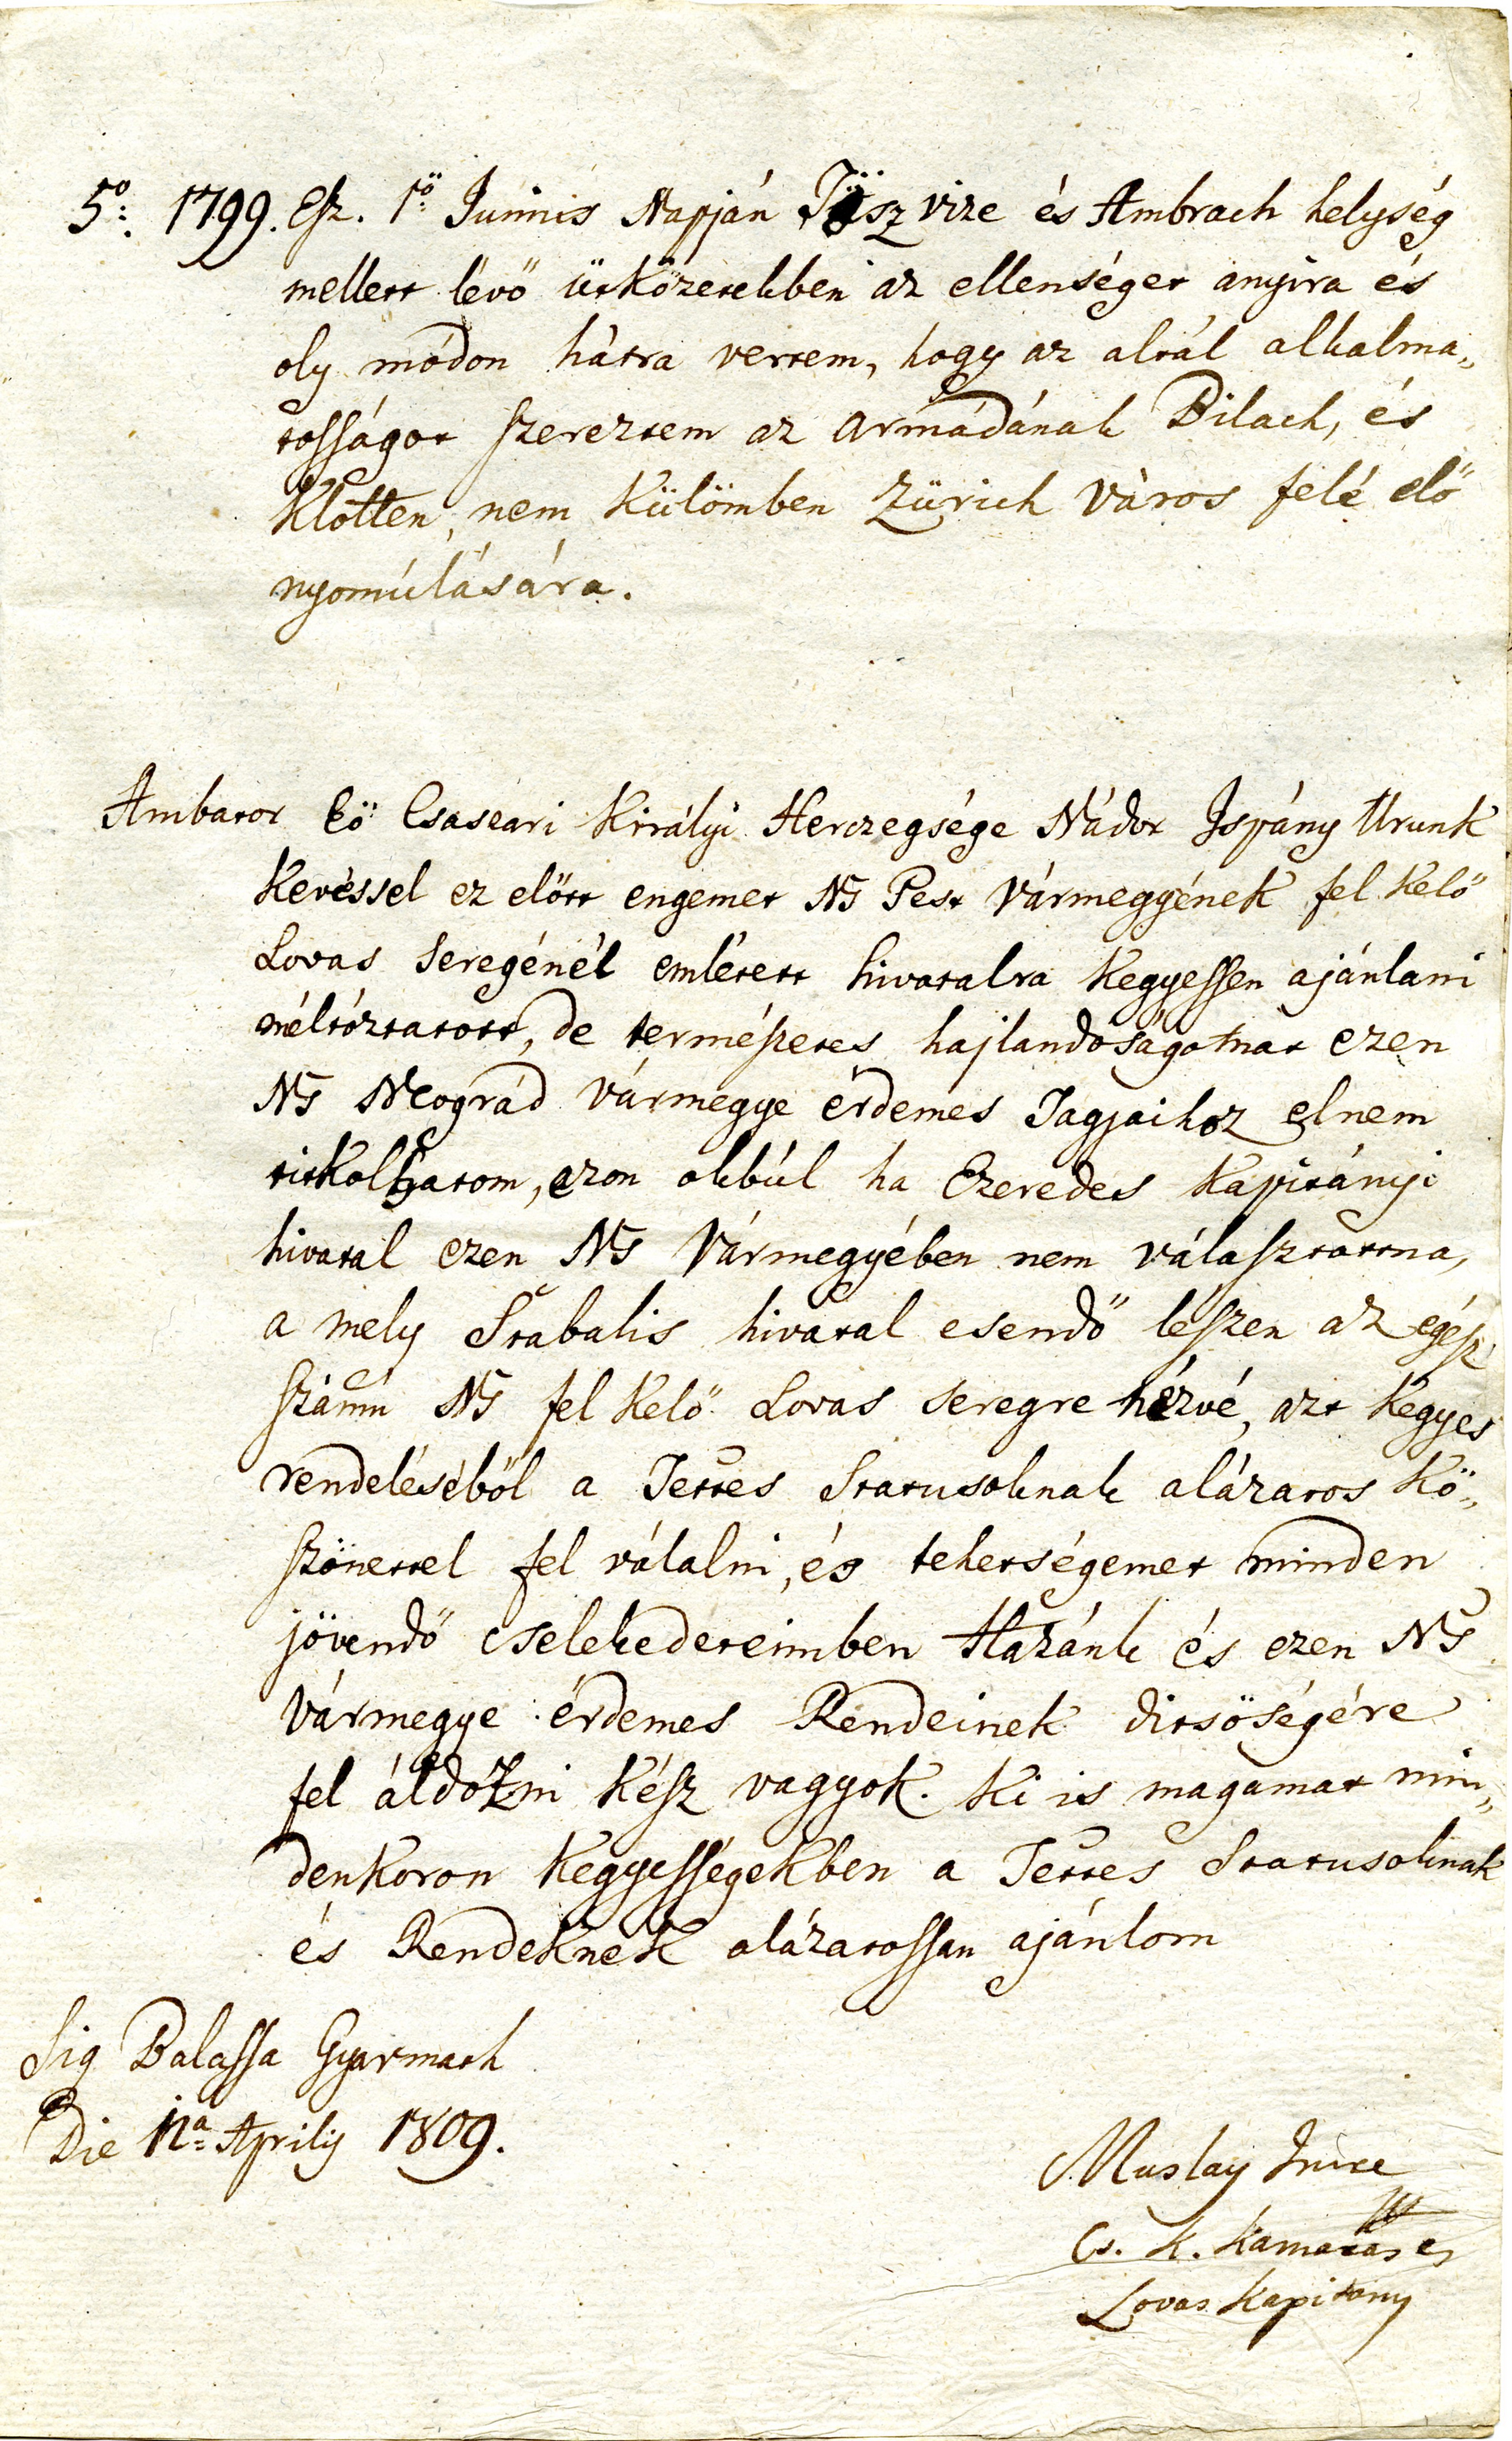 5º: 1799. Esz. 1ö Juinis Napján Tösz vize és Ambrach helység
mellett lévő ütközetekben az ellenséget anyira és
oly módon hátra vertem, hogy az altál alkalma„
tosságot szereztem az armádának Bilach, és
Klotten, nem külömben Zürich Város felé elő
nyomúlására.
Ambator Eö Csascari Királyi Herczegsége Nádor Ispány Urunk
kevéssel ez előtt engemet Ns Pest Vármegyének fel kelő
Lovas Seregénél emlétett hivatalra kegyessen ajánlani
méltóztatott, de természetes hajlandoságotnat ezen
Ns Neográd Vármegye érdemes Tagjaihoz elnem
titkolhatom, azon okbúl ha Ezeredes kapitányi
hivatal ezen Ns Vármegyében nem választatna,
a mely Stabalis hivatal esendő lészen az egész
számú Ns fel kelő Lovas seregre nézvé, azt kegyes
rendeléséböl a Tettes Statusoknak alázatos kö„
szönettel fel válalni, és tehetségemet minden
jövendő cselekedeteimben Hazánk és ezen Ns
Vármegye érdemes Rendeinek ditsöségére
fel áldózni kész vagyok. Ki is magamat min„
denkoron kegyességekben a Tettes Statusoknak
és Rendeknek alázatossan ajánlom
Sig Balassa Gyarmath
Die 12ª Aprily 1809.
Muslay Imre
Cs. K. Kamarás és
Lovas Kapitany